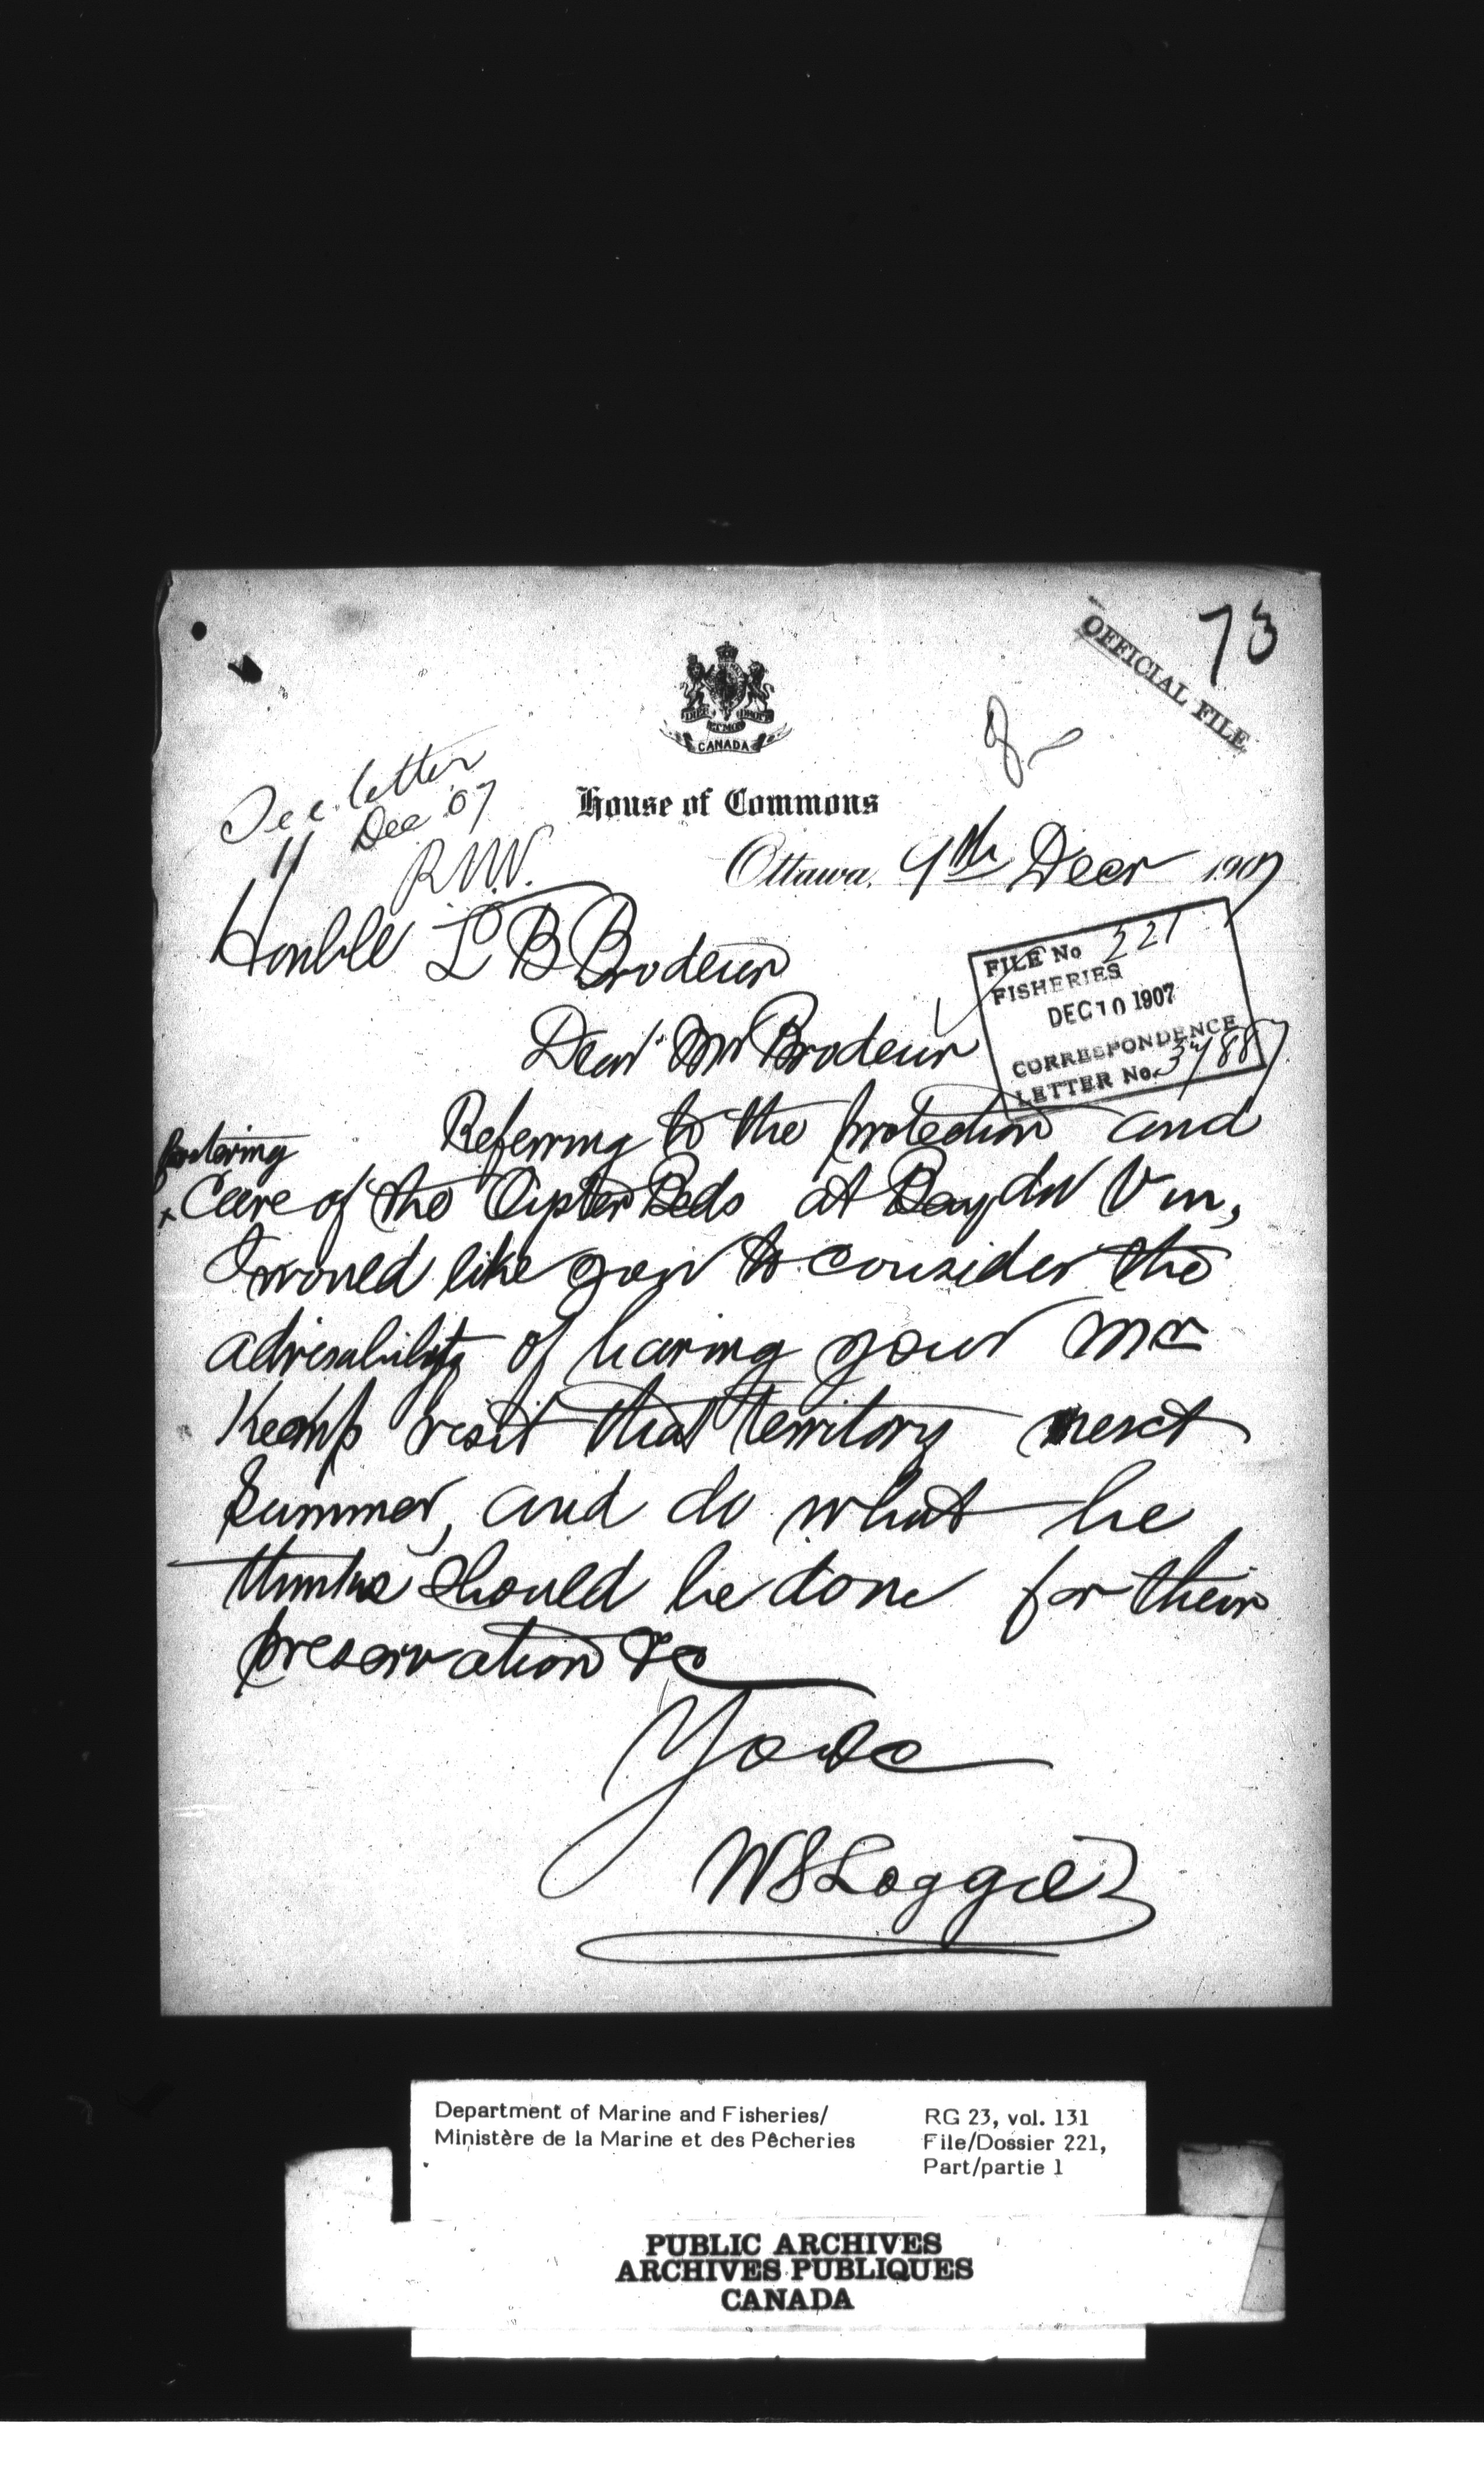 73
OFFICIAL FILE
DIEU ET MON DROIT
CANADA
See letter
11 Dec '07
R.N.V.
House of Commons
Ottawa, 9th Decr 1907
Honble L B Brodeur
FILE No 221
FISHERIES
DEC 10 1907
CORRESPONDENCE
LETTER No.
Dear Mr Brodeur
Referring to the protection and
fostering
Care of the Oyster Beds at Bay du Vin,
I would like you to consider the
advisability of having your Mr
Kemp visit that territory next
Summer, and do what he
thinks should be done for their
preservation &c
Yours
W S Loggie
Department of Marine and Fisheries/
Ministère de la Marine et des Pêcheries
RG 23, vol. 131
File/Dossier 221,
Part/partie 1
PUBLIC ARCHIVES
ARCHIVES PUBLIQUES
CANADA